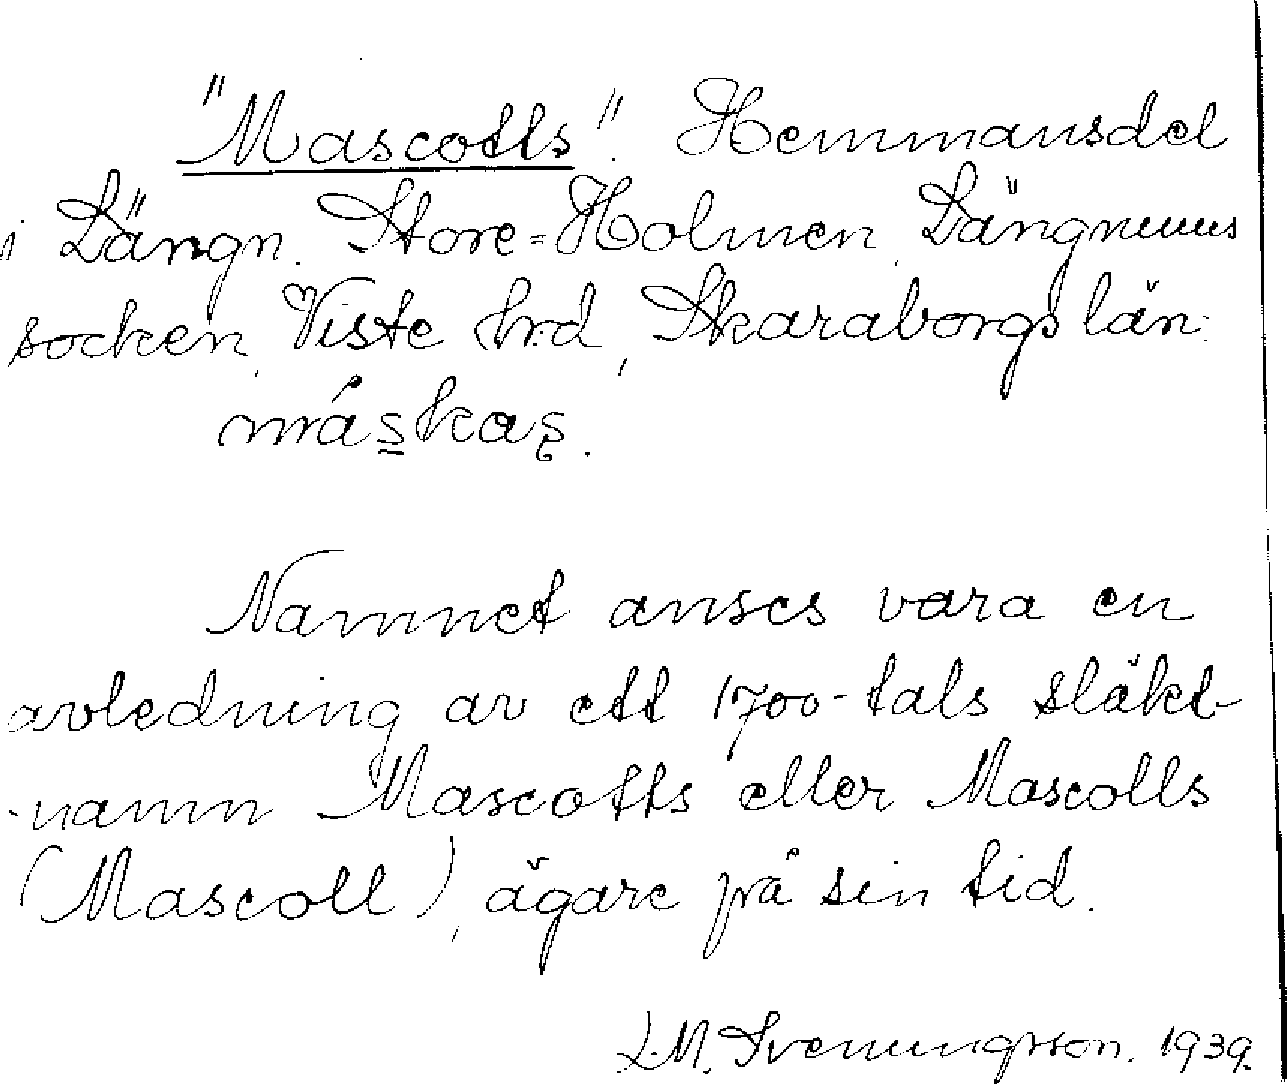 "Mascotts". Hemmansdel
i Längn. Store=Holmen, Längnums
socken, Viste hrd, Skaraborgs län:
máskas.
Namnet anses vara en
avledning av ett 1700-tals släkt-
-namn Mascotts eller Mascolls
(Mascoll), ägare på sin tid.
L.M. Svenungsson. 1939.